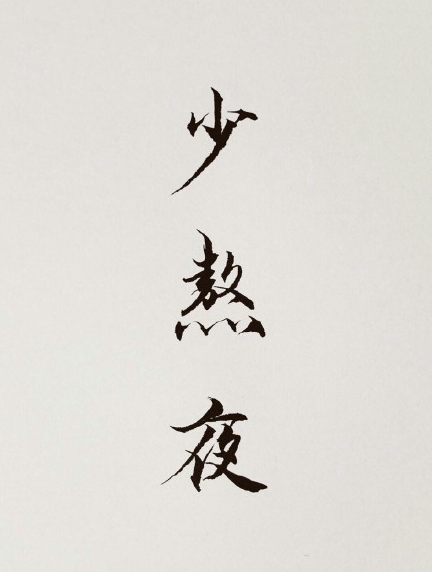 少熬夜